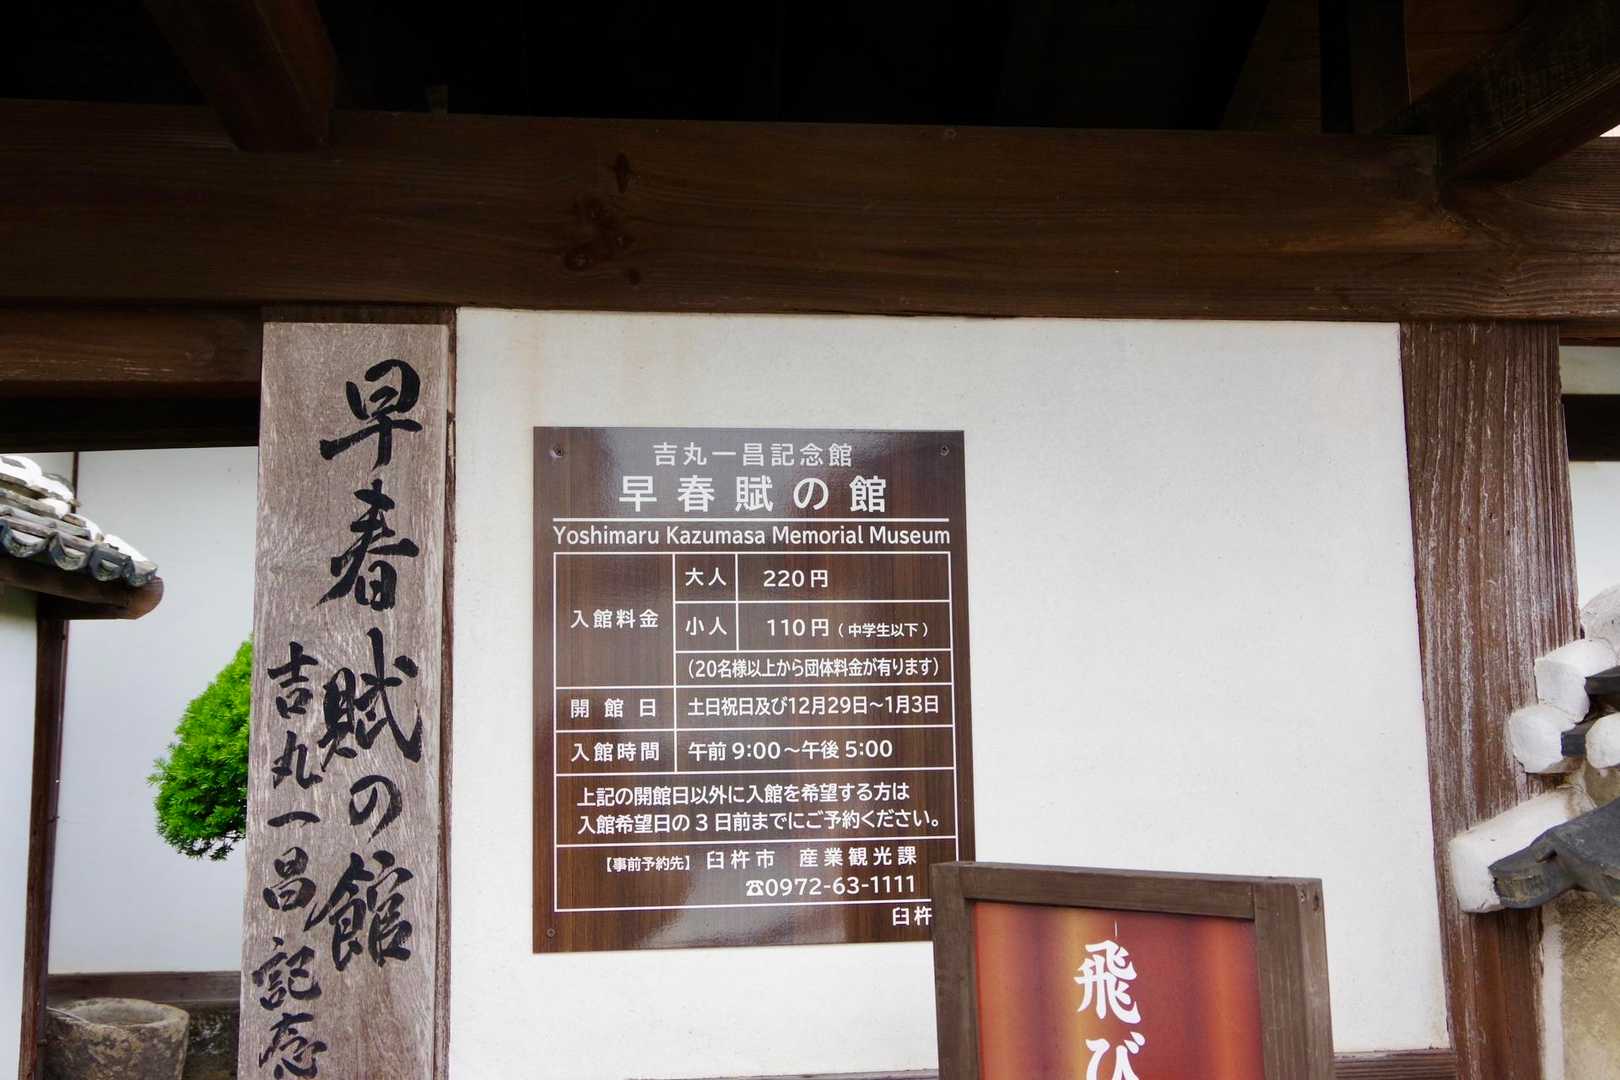 早春賦の館
吉丸一昌記念
吉丸一昌記念館
早春賦の館
Yoshimaru Kazumasa Memorial Museum
入館料金
大人 220円
小人 110円(中学生以下)
(20名様以上から団体料金が有ります)
開館日 土日祝日及び12月29日～1月3日
入館時間 午前 9:00～午後 5:00
上記の開館日以外に入館を希望する方は
入館希望日の3日前までにご予約ください。
【事前予約先】 臼杵市 産業観光課
☎0972-63-1111
臼杵
飛び